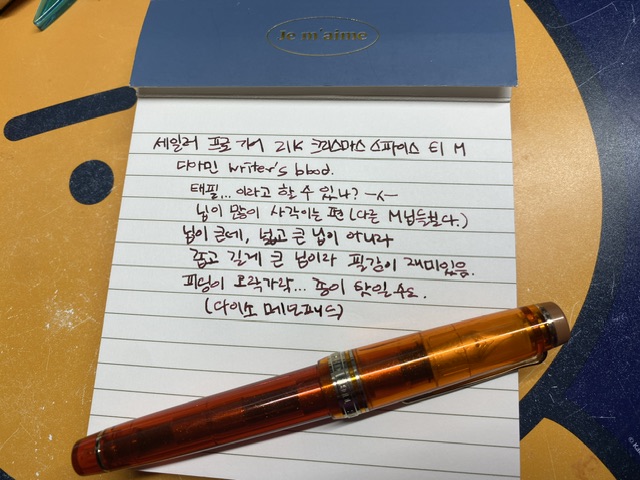 Je m'aime
세일러 프로기어 21K 크리스마스 스파이스 티 M
다이아민 writer's blood.
태필... 이라고 할 수 있나? -ㅅ-
닙이 많이 사각이는 편 (다른 M닙들보다.)
닙이 큰데, 넓고 큰 닙이 아니라
좁고 길게 큰 닙이라 필감이 재미있음.
피딩이 오락가락... 종이 탓일 수도.
(다이소 메모패드)